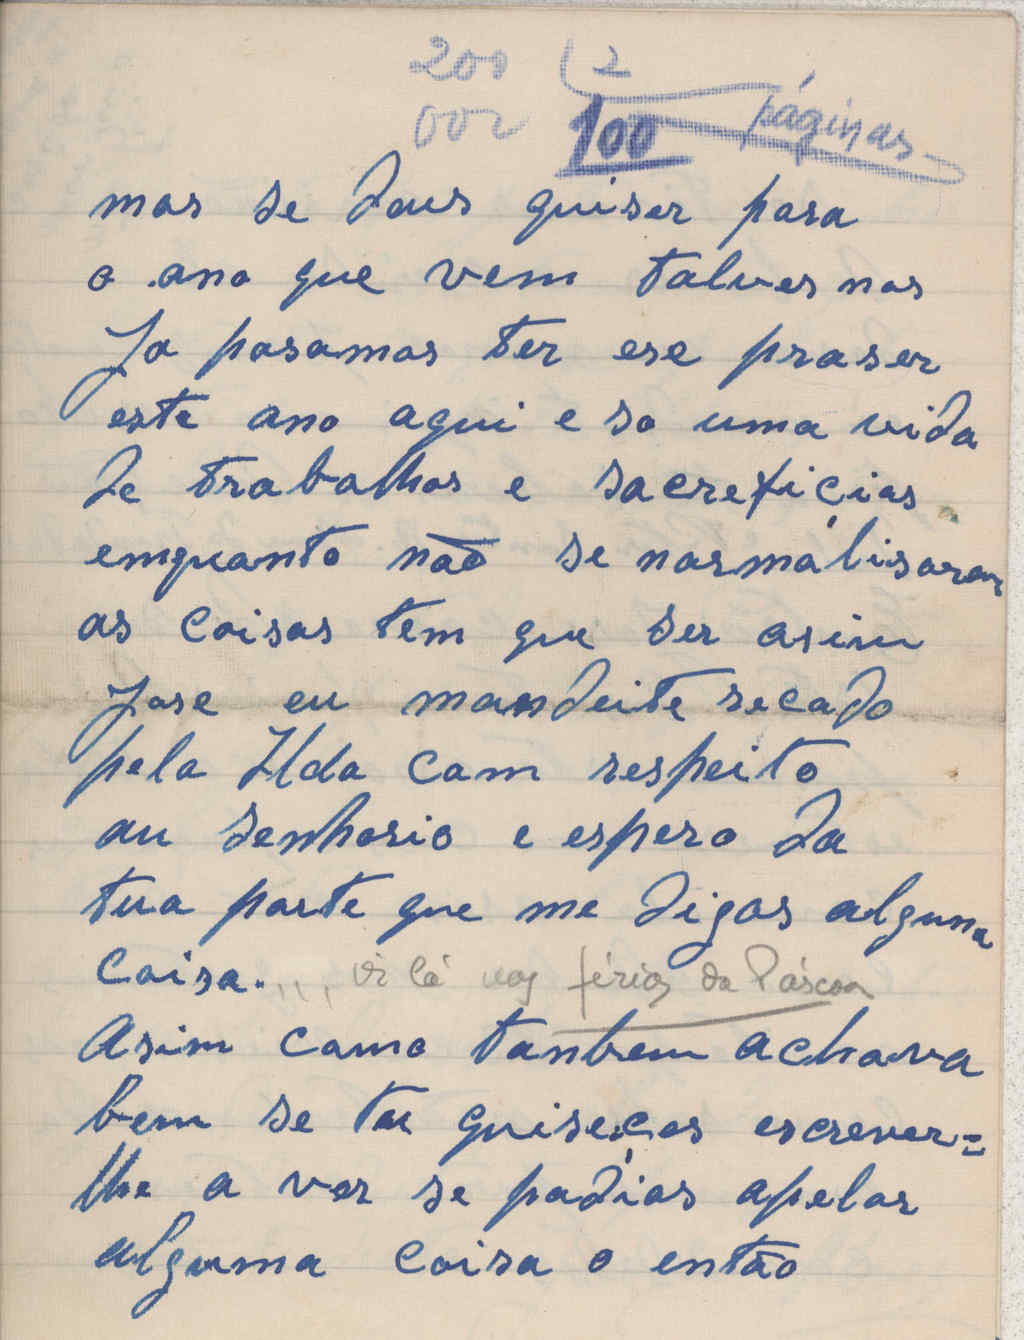 200 2
002 100 páginas
mas se Deus quiser para
o ano que vem talves nos
Ja posamos ter ese praser
este ano aqui e so uma vida
de trabalhos e sacreficios
emquanto não se normálisarem
as coisas tem que ser asim
Jose eu mandeite recado
pela Ilda com respeito
au senhorio e espero da
tua parte que me digas alguma
coisa.,,, vi lá nas férias da Páscoa
Asim como tanbem achava
bem se tu quiseces escrever=
lhe a ver se podias apelar
alguma coisa o então